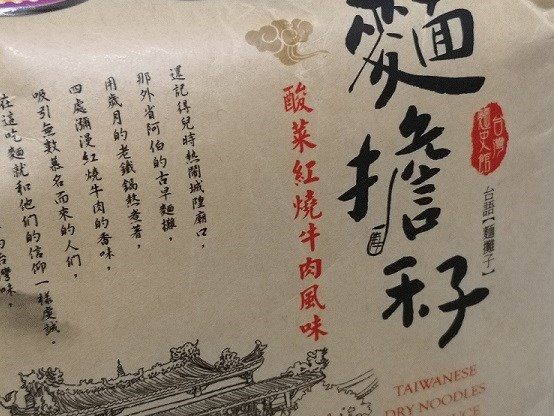 麵擔籽
台灣
麵史館
台語【麵攤子】
酸菜紅燒牛肉風味
還記得兒時熱鬧城隍廟口，
那外省阿伯的古早麵攤，
用歲月的老鐵鍋熬煮著，
四處瀰漫紅燒牛肉的香味，
吸引無數慕名而來的人們，
在這吃麵就和他們的信仰一樣虔誠，
的台灣味，
TAIWANESE
DRY NOODLES